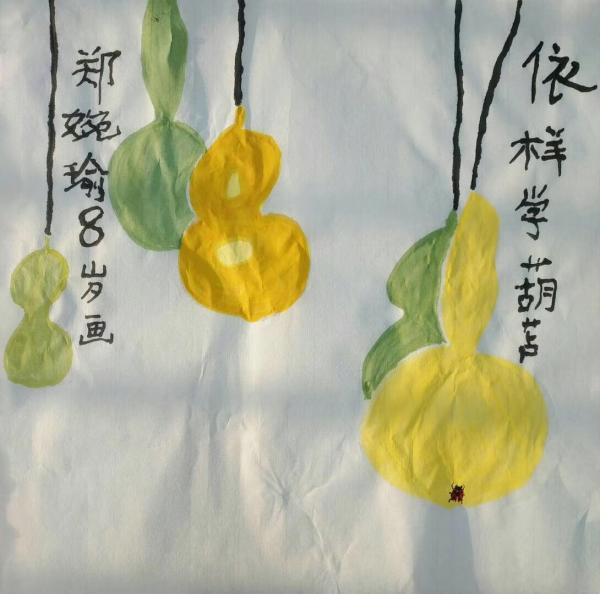 依样学葫芦
郑婉瑜8岁画